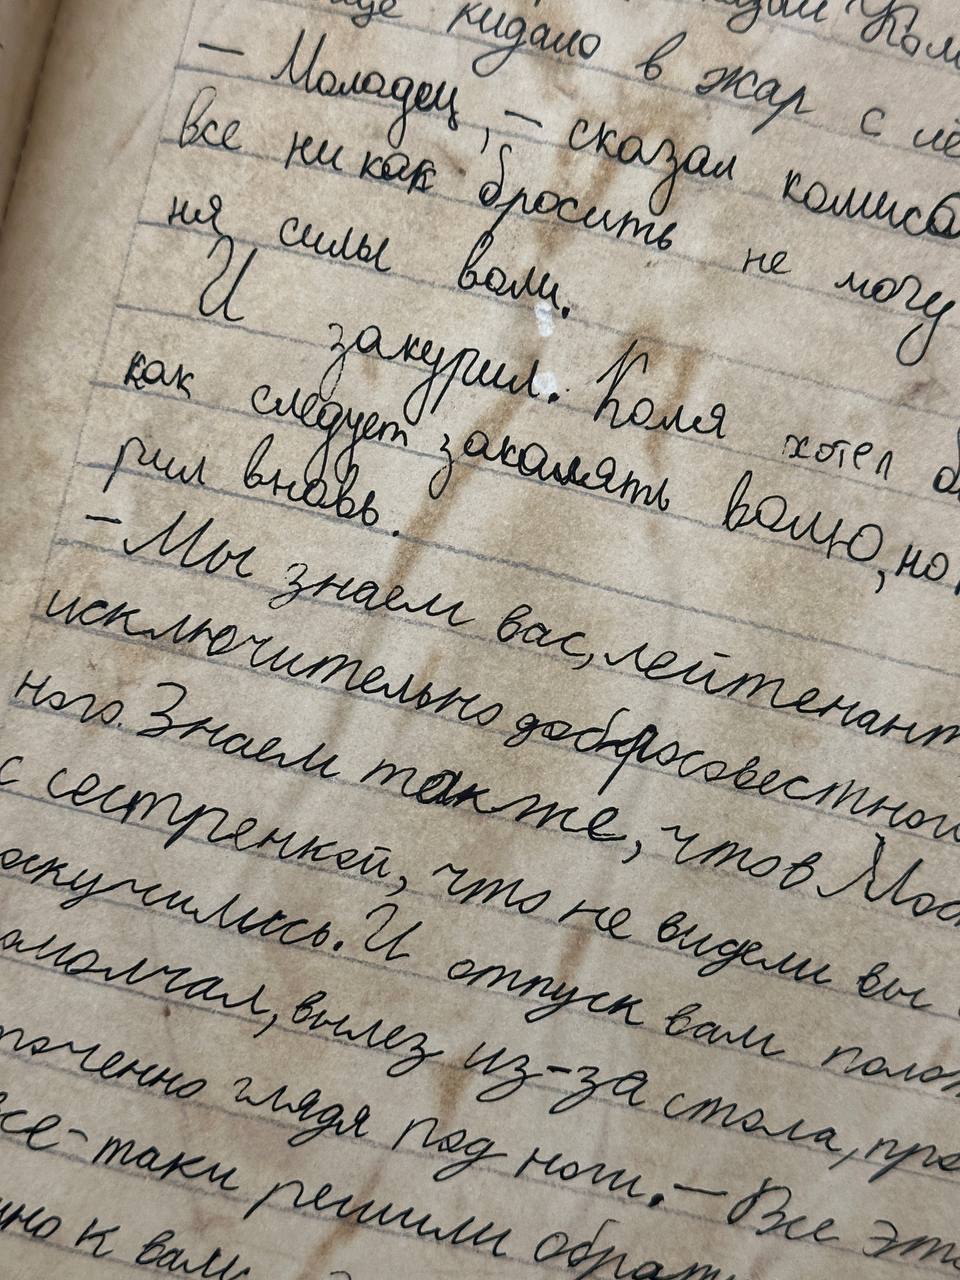 кидало в жар с
— Молодец, — сказал комисс
все никак бросить не могу
ня силы воли.
И закурил. Коля хотел
как следует закалять волю, но
рил вновь.
— Мы знаем вас, лейтенант
исключительно добросовестног
ного. Знаем также, что в Мос
с сестренкой, что не видели вы
оскучились. И отпуск вам полож
омолчал, вылез из-за стола, про
точенно глядя под ноги. — Все это
все-таки решили обрат
но к вам